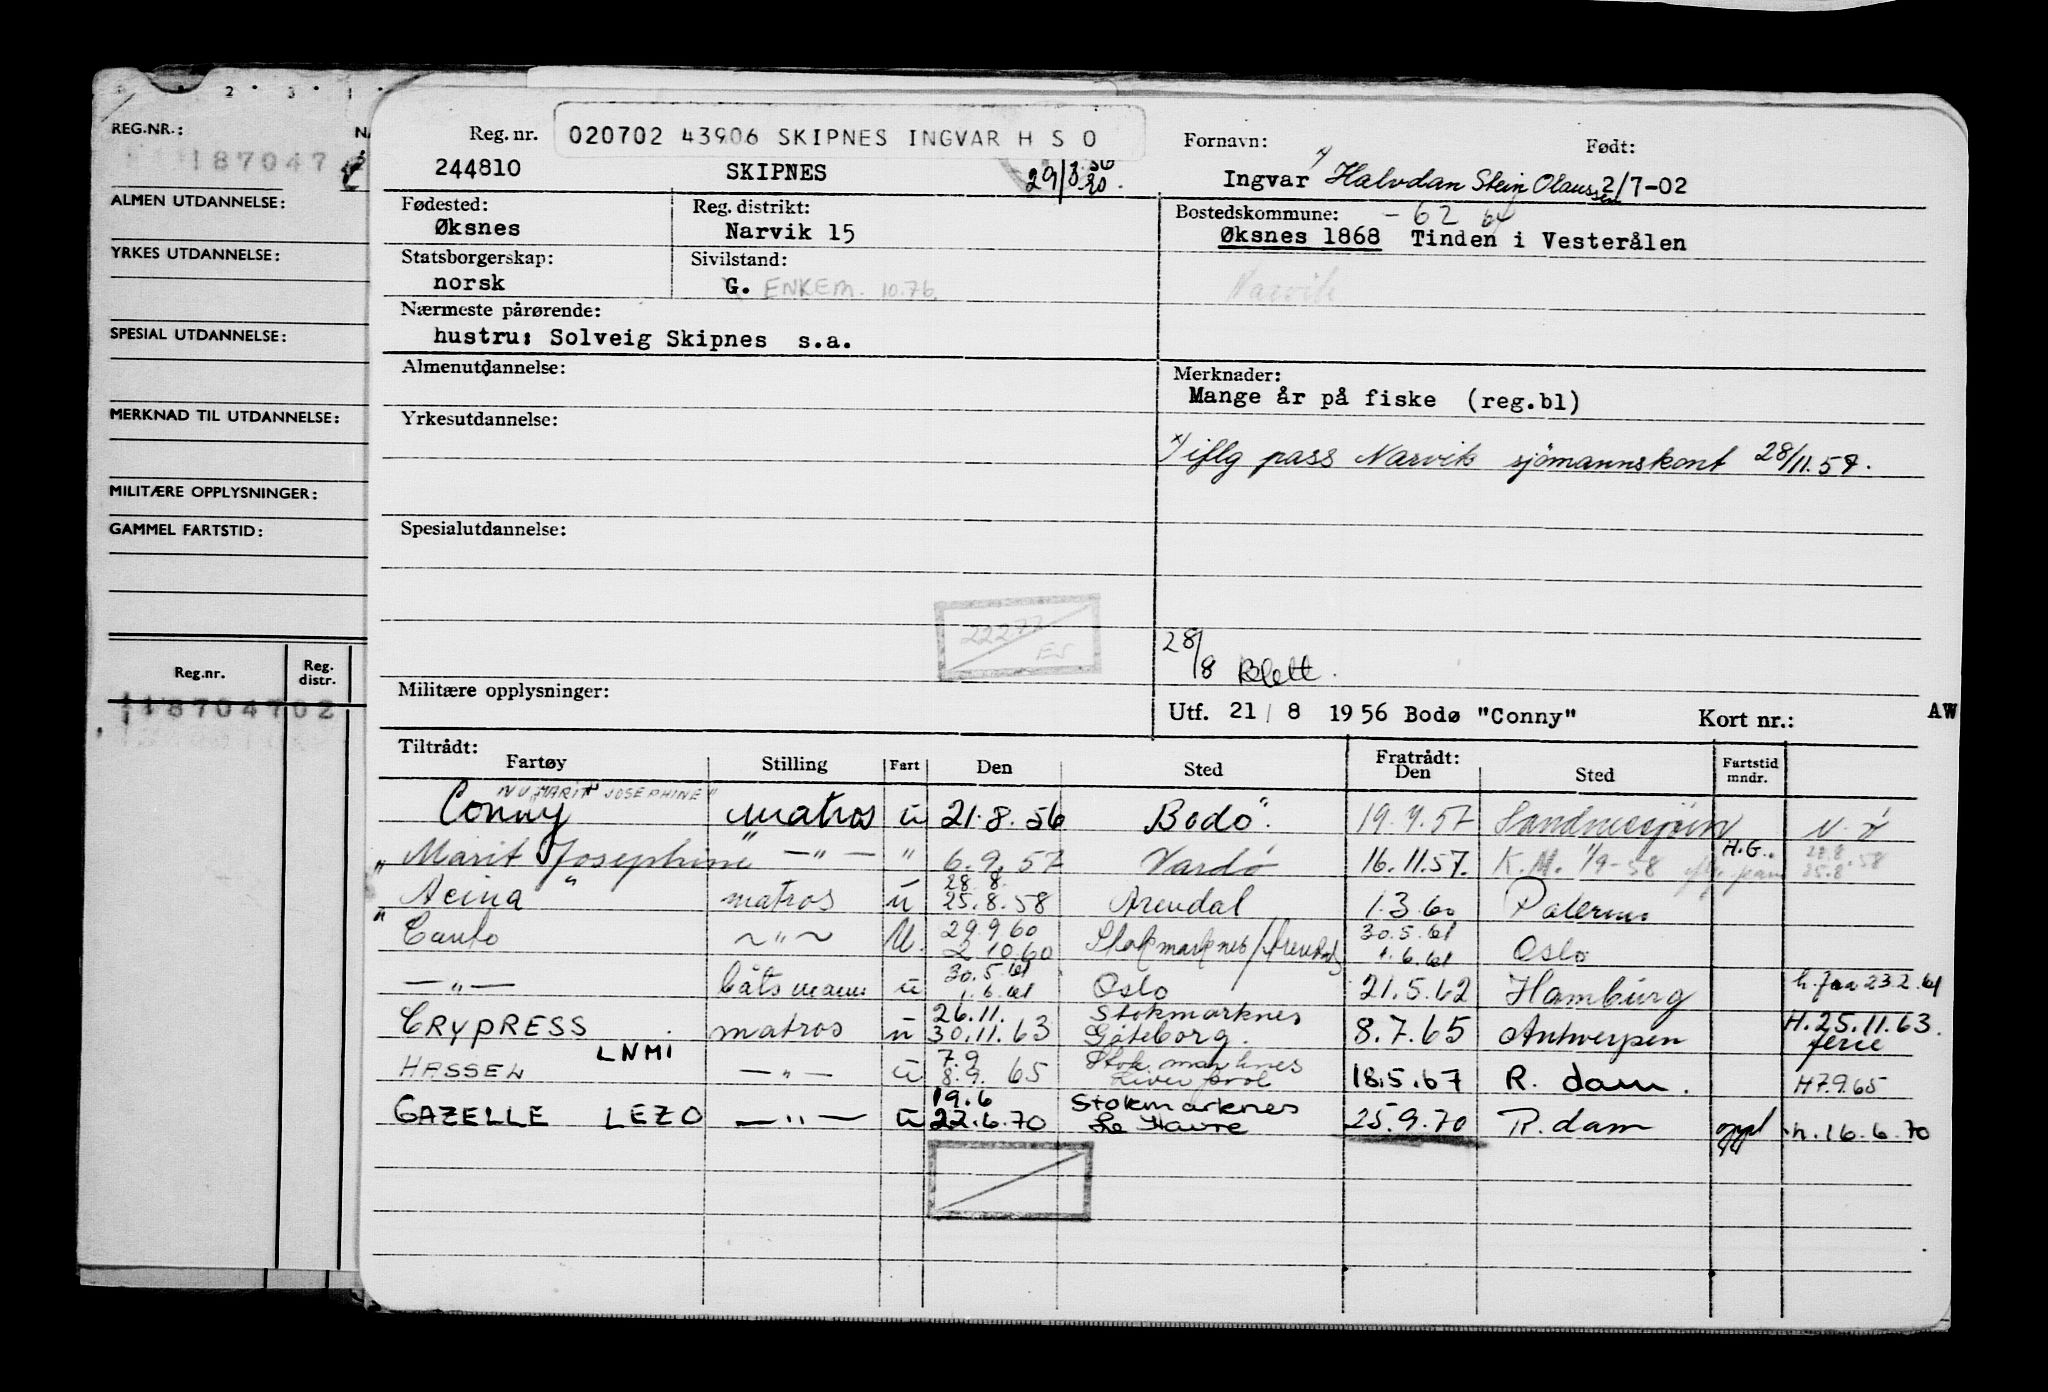 2 · 3 · 1 ·
REG.NR.:
187047
ALMEN UTDANNELSE:
YRKES UTDANNELSE:
SPESIAL UTDANNELSE:
MERKNAD TIL UTDANNELSE:
MILITÆRE OPPLYSNINGER:
GAMMEL FARTSTID:
Reg.nr. Reg. distr.
118704702
Reg. nr. 020702 43906 SKIPNES INGVAR H S O Fornavn: Født:
244810 SKIPNES 29/8 x) Ingvar Halvdan Stein Olaussen 2/7-02
Fødested: Reg. distrikt: Bostedskommune: - 62 64
Øksnes Narvik 15 Øksnes 1868 Tinden i Vesterålen
Statsborgerskap: Sivilstand:
norsk G. ENKEM. 10.76. Narvik
Nærmeste pårørende:
hustru: Solveig Skipnes s.a.
Almenutdannelse: Merknader:
Mange år på fiske (reg.bl)
Yrkesutdannelse:
x) iflg pass Narvik sjömannskont 28/11.59.
Spesialutdannelse:
22277
ES
28/8 Blett.
Militære opplysninger:
Utf. 21/8 1956 Bodø "Conny" Kort nr.: AW
Tiltrådt: Fratrådt:
Fartøy Stilling Fart Den Sted Den Sted Fartstid mndr.
NU "MARIT JOSEPHINE"
Conny matros u 21.8.56 Bodö. 19.9.57 Sandnessjöen
"Marit Josephine" —"— " 6.9.57 Vardö 16.11.57. K.M. 1/9-58 H.G. 28.8.58
28.8. 25.8
"Acina" matros u 25.8.58 Arendal 1.3.60 Palermo
29.9 60 30.5.61
"Canto ~"~ u. 2 10.60 Stokmarknes/Arendal 1.6.61 Oslo
30.5.61
—"— båtsmann u 1.6.61 Oslo 21.5.62 Hamburg h. fra 23.2.61
26.11. Stokmarknes
CRYPRESS matros u 30.11.63 Göteborg. 8.7.65 Antwerpen H.25.11.63. ferie
LNMI 7.9 Stokmarknes
HASSEN —"— u 8.9. 65 Liverpool 18.5.67 R. dam. H7.9.65
19.6 Stokmarknes
GAZELLE LEZO —"— u 22.6.70 Le Havre 25.9.70 R.dam oppl h.16.6.70